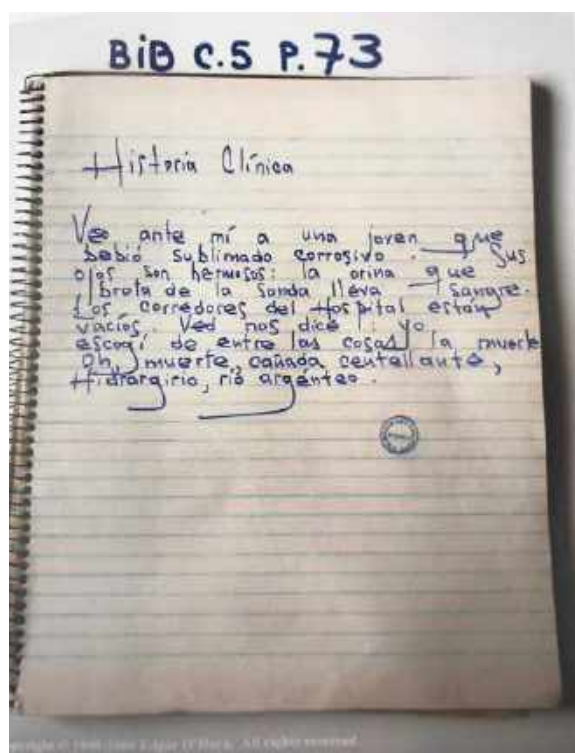 BiB C.5 P.73
Historia Clínica
Veo ante mí a una joven que
bebió sublimado corrosivo. Sus
ojos son hermosos: la orina que
brota de la sonda lleva sangre.
Los corredores del Hospital están
vacíos. Ved nos dice: yo
escogí de entre las cosas la muerte
Oh, muerte, cañada centellante,
Hidrargirio, río argénteo.
All rights reserved